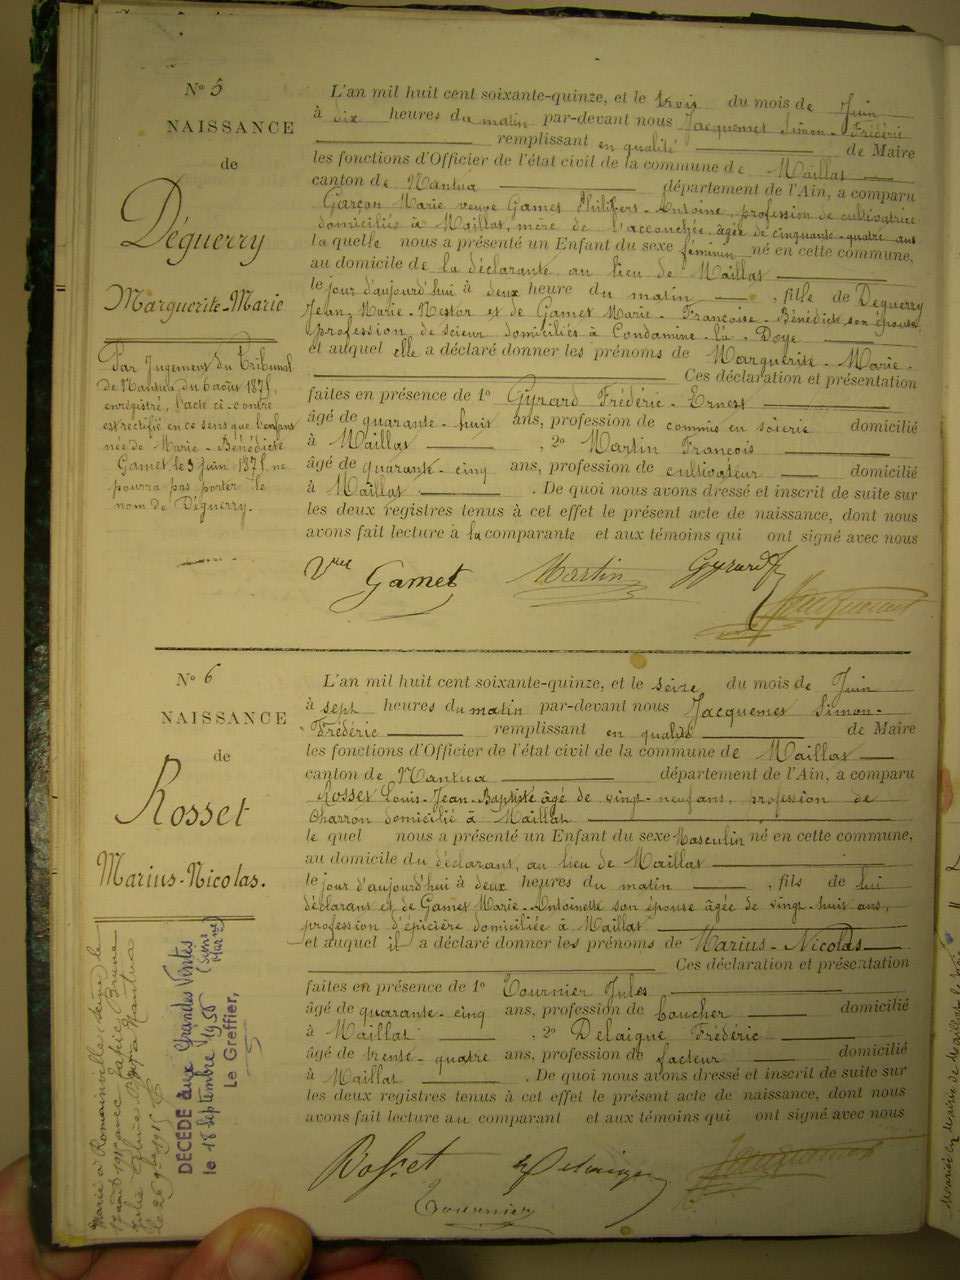 N° 5
NAISSANCE
de
Déguerry
Marguerite-Marie
Par Jugement du Tribunal
de Nantua du 6 août 1875,
enregistré, l'acte ci-contre
est rectifié en ce sens que l'enfant
née de Marie-Bénédicte
Gamet le 3 juin 1875, ne
pourra pas porter le
nom de Déguerry.
L'an mil huit cent soixante-quinze, et le trois du mois de Juin
à dix heures du matin par-devant nous Jacquemet Simon-Frédéric
remplissant en qualité de Maire
les fonctions d'Officier de l'état civil de la commune de Maillat
canton de Nantua département de l'Ain, a comparu
Garçon Marie veuve Gamet Philibert-Antoine, profession de cultivatrice
domiciliée à Maillat, mère de l'accouchée, âgée de cinquante-quatre ans
la quelle nous a présenté un Enfant du sexe féminin né en cette commune,
au domicile de la déclarante au lieu de Maillat
le jour d'aujourd'hui à deux heure du matin , fille de Déguerry
Jean-Marie-Nestor et de Gamet Marie-Françoise-Bénédicte son épouse,
profession de scieur domiciliés à Condamine-la-Doye
et auquel elle a déclaré donner les prénoms de Marguérite-Marie.
Ces déclaration et présentation
faites en présence de 1° Gyrard Frédéric-Ernest
âgé de quarante-huit ans, profession de commis en soierie domicilié
à Maillat , 2° Martin François
âgé de quarante-cinq ans, profession de cultivateur domicilié
à Maillat . De quoi nous avons dressé et inscrit de suite sur
les deux registres tenus à cet effet le présent acte de naissance, dont nous
avons fait lecture à la comparante et aux témoins qui ont signé avec nous
Vve Gamet Martin Gyrard Jacquemet
N° 6
NAISSANCE
de
Rosset
Marius-Nicolas.
Marié à Romainville (Seine) le
Julie
le 26 9bre 1915
DÉCÉDÉ aux Grandes Ventes
(Seine Mar me)
le 18 septembre 1956
Le Greffier,
L'an mil huit cent soixante-quinze, et le seize du mois de Juin
à sept heures du matin par-devant nous Jacquemet Simon-
Frédéric remplissant en qualité de Maire
les fonctions d'Officier de l'état civil de la commune de Maillat
canton de Nantua département de l'Ain, a comparu
Rosset Louis-Jean-Baptiste âgé de vingt-neuf ans, profession de
Charron domicilié à Maillat
le quel nous a présenté un Enfant du sexe Masculin né en cette commune,
au domicile du déclarant, au lieu de Maillat
le jour d'aujourd'hui à deux heures du matin , fils de lui
déclarant et de Gamet Marie-Antoinette son épouse âgée de vingt-huit ans,
profession d'épicière domiciliée à Maillat
et auquel il a déclaré donner les prénoms de Marius-Nicolas
Ces déclaration et présentation
faites en présence de 1° Tournier Jules
âgé de quarante-cinq ans, profession de boucher domicilié
à Maillat , 2° Delaigue Frédéric
âgé de trente-quatre ans, profession de facteur domicilié
à Maillat . De quoi nous avons dressé et inscrit de suite sur
les deux registres tenus à cet effet le présent acte de naissance, dont nous
avons fait lecture au comparant et aux témoins qui ont signé avec nous
Rosset Delaigue Jacquemet
Tournier